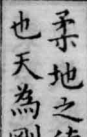 柔地之
也天為剛